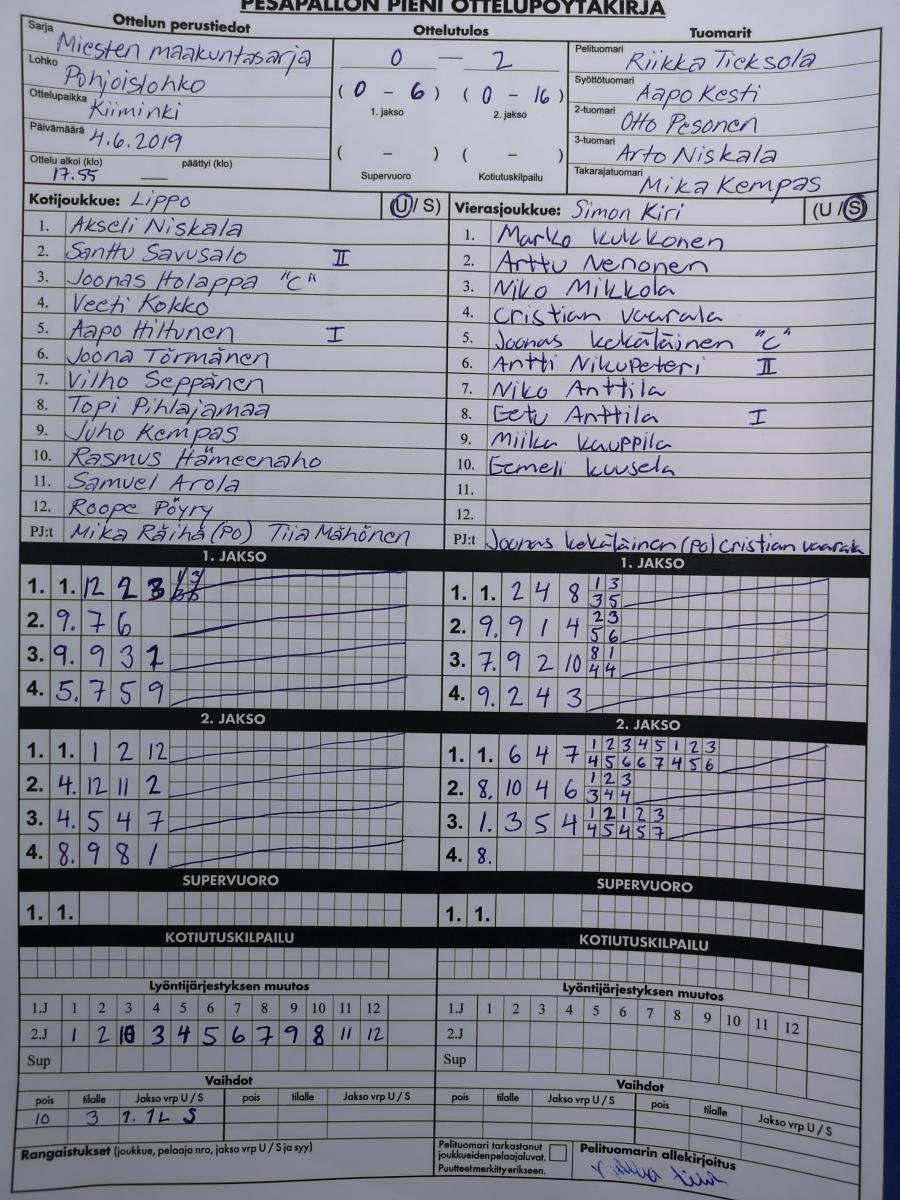 PESÄPALLON PIENI OTTELUPÖYTÄKIRJA
Ottelun perustiedot
Sarja Miesten maakuntasarja
Lohko Pohjoislohko
Ottelupaikka Kiiminki
Päivämäärä 4.6.2019
Ottelu alkoi (klo) päättyi (klo)
17.55 —
Ottelutulos
0 — 2
( 0 - 6 ) ( 0 - 16 )
1. jakso 2. jakso
( - ) ( - )
Supervuoro Kotiutuskilpailu
Tuomarit
Pelituomari Riikka Tieksola
Syöttötuomari Aapo Kesti
2-tuomari Otto Pesonen
3-tuomari Arto Niskala
Takarajatuomari Mika Kempas
Kotijoukkue: Lippo (U / S)
1. Akseli Niskala
2. Santtu Savusalo II
3. Joonas Holappa "C"
4. Veeti Kokko
5. Aapo Hiltunen I
6. Joona Törmänen
7. Vilho Seppänen
8. Topi Pihlajamaa
9. Juho Kempas
10. Rasmus Hämeenaho
11. Samuel Arola
12. Roope Pöyry
PJ:t Mika Räihä (PO) Tiia Mähönen
Vierasjoukkue: Simon Kiri (U / S)
1. Marko Kukkonen
2. Arttu Nenonen
3. Niko Mikkola
4. Cristian Vaarala
5. Joonas Kekäläinen "C"
6. Antti Nikupeteri II
7. Niko Anttila
8. Eetu Anttila I
9. Miika Kauppila
10. Eemeli Kuusela
11.
12.
PJ:t Joonas Kekäläinen (PO) Cristian Vaarala
1. JAKSO
1. 1. 12 2 3
2. 9. 7 6
3. 9. 9 3 1
4. 5. 7 5 9
2. JAKSO
1. 1. 1 2 12
2. 4. 12 11 2
3. 4. 5 4 7
4. 8. 9 8 1
SUPERVUORO
1. 1.
KOTIUTUSKILPAILU
Lyöntijärjestyksen muutos
1.J 1 2 3 4 5 6 7 8 9 10 11 12
2.J 1 2 10 3 4 5 6 7 9 8 11 12
Sup
Vaihdot
pois tilalle Jakso vrp U / S pois tilalle Jakso vrp U / S
10 3 1. 1L S
Rangaistukset (joukkue, pelaaja nro, jakso vrp U / S ja syy)
1. JAKSO
1. 1. 2 4 8 1 3
3 5
2. 9. 9 1 4 2 3
5 6
3. 7. 9 2 10 8 1
4 4
4. 9. 2 4 3
2. JAKSO
1. 1. 6 4 7 1 2 3 4 5 1 2 3
4 5 6 6 7 4 5 6
2. 8. 10 4 6 1 2 3
3 4 4
3. 1. 3 5 4 1 2 1 2 3
4 5 4 5 7
4. 8.
SUPERVUORO
1. 1.
KOTIUTUSKILPAILU
Lyöntijärjestyksen muutos
1.J 1 2 3 4 5 6 7 8 9 10 11 12
2.J
Sup
Vaihdot
pois tilalle Jakso vrp U / S pois tilalle Jakso vrp U / S
Pelituomari tarkastanut
joukkueidenpelaajaluvat.
Puutteetmerkitty erikseen.
Pelituomarin allekirjoitus